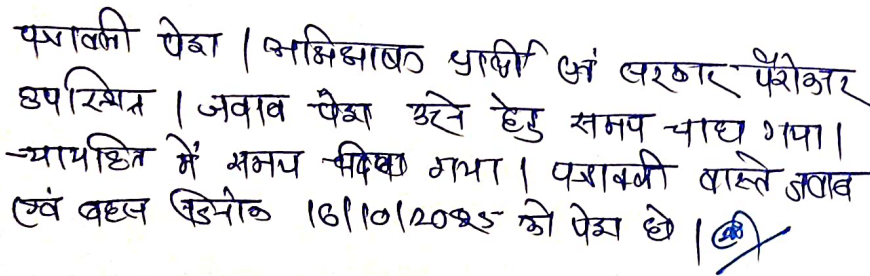 पत्रावली पेश । अभिभाषक प्रार्थी एवं सरकार पैरोकार
उपस्थित । जवाब पेश करने हेतु समय चाहा गया ।
न्यायहित में समय दिया गया । पत्रावली वास्ते जवाब
एवं बहस दिनांक 16/10/2025 को पेश हो ।